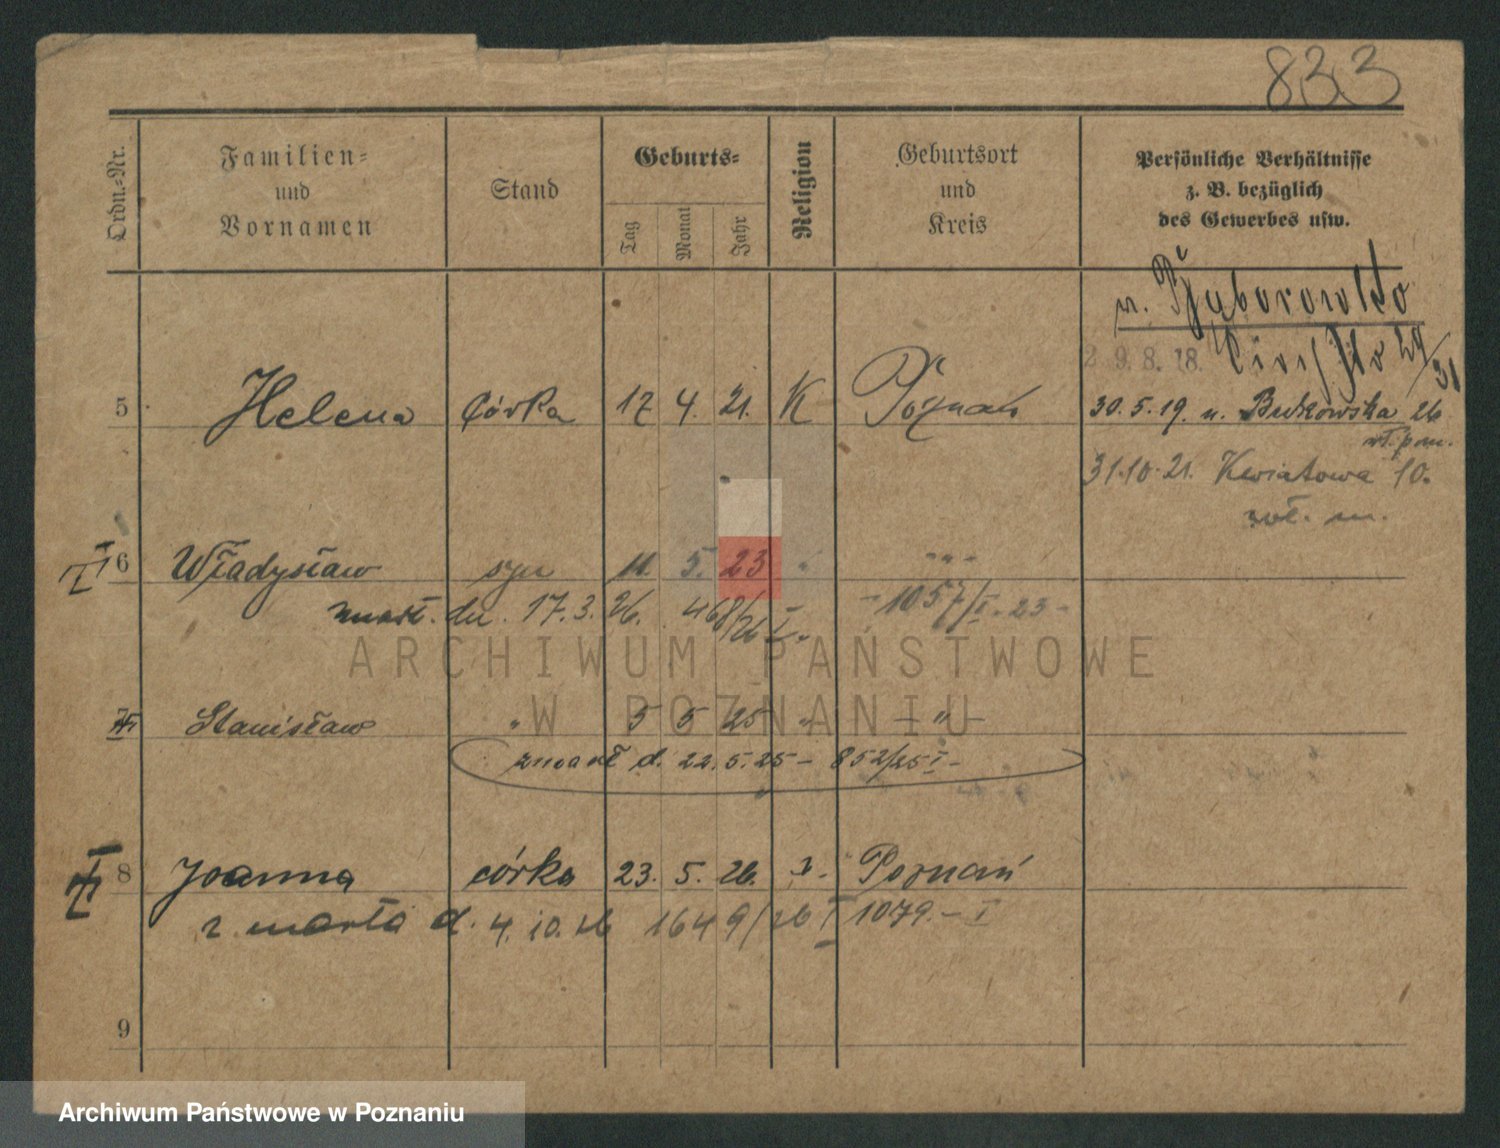 833
Ordn.-Nr.
Familien-
und
Vornamen
Stand
Geburts-
Tag
Monat
Jahr
Religion
Geburtsort
und
Kreis
Persönliche Verhältnisse
z. B. bezüglich
des Gewerbes usw.
29.8.18.
5 Helena córka 17 4. 21. K Poznań 30.5.19. u. Bukowska 26
31.10.21. Kwiatowa 10.
6 Władysław syn 11. 5. 23 " - " -
zmarł. dn. 17.3.26. 468/26 I. - 1057/I. 23 -
7 Stanisław " 5 5 25 " - " -
zmarł d. 22.5.25 - 852/25 I -
8 Joanna córka 23. 5. 26. Poznań
zmarła d. 4.10.26 1649/26 I 1079. - I
9
ARCHIWUM PAŃSTWOWE
W POZNANIU
Archiwum Państwowe w Poznaniu